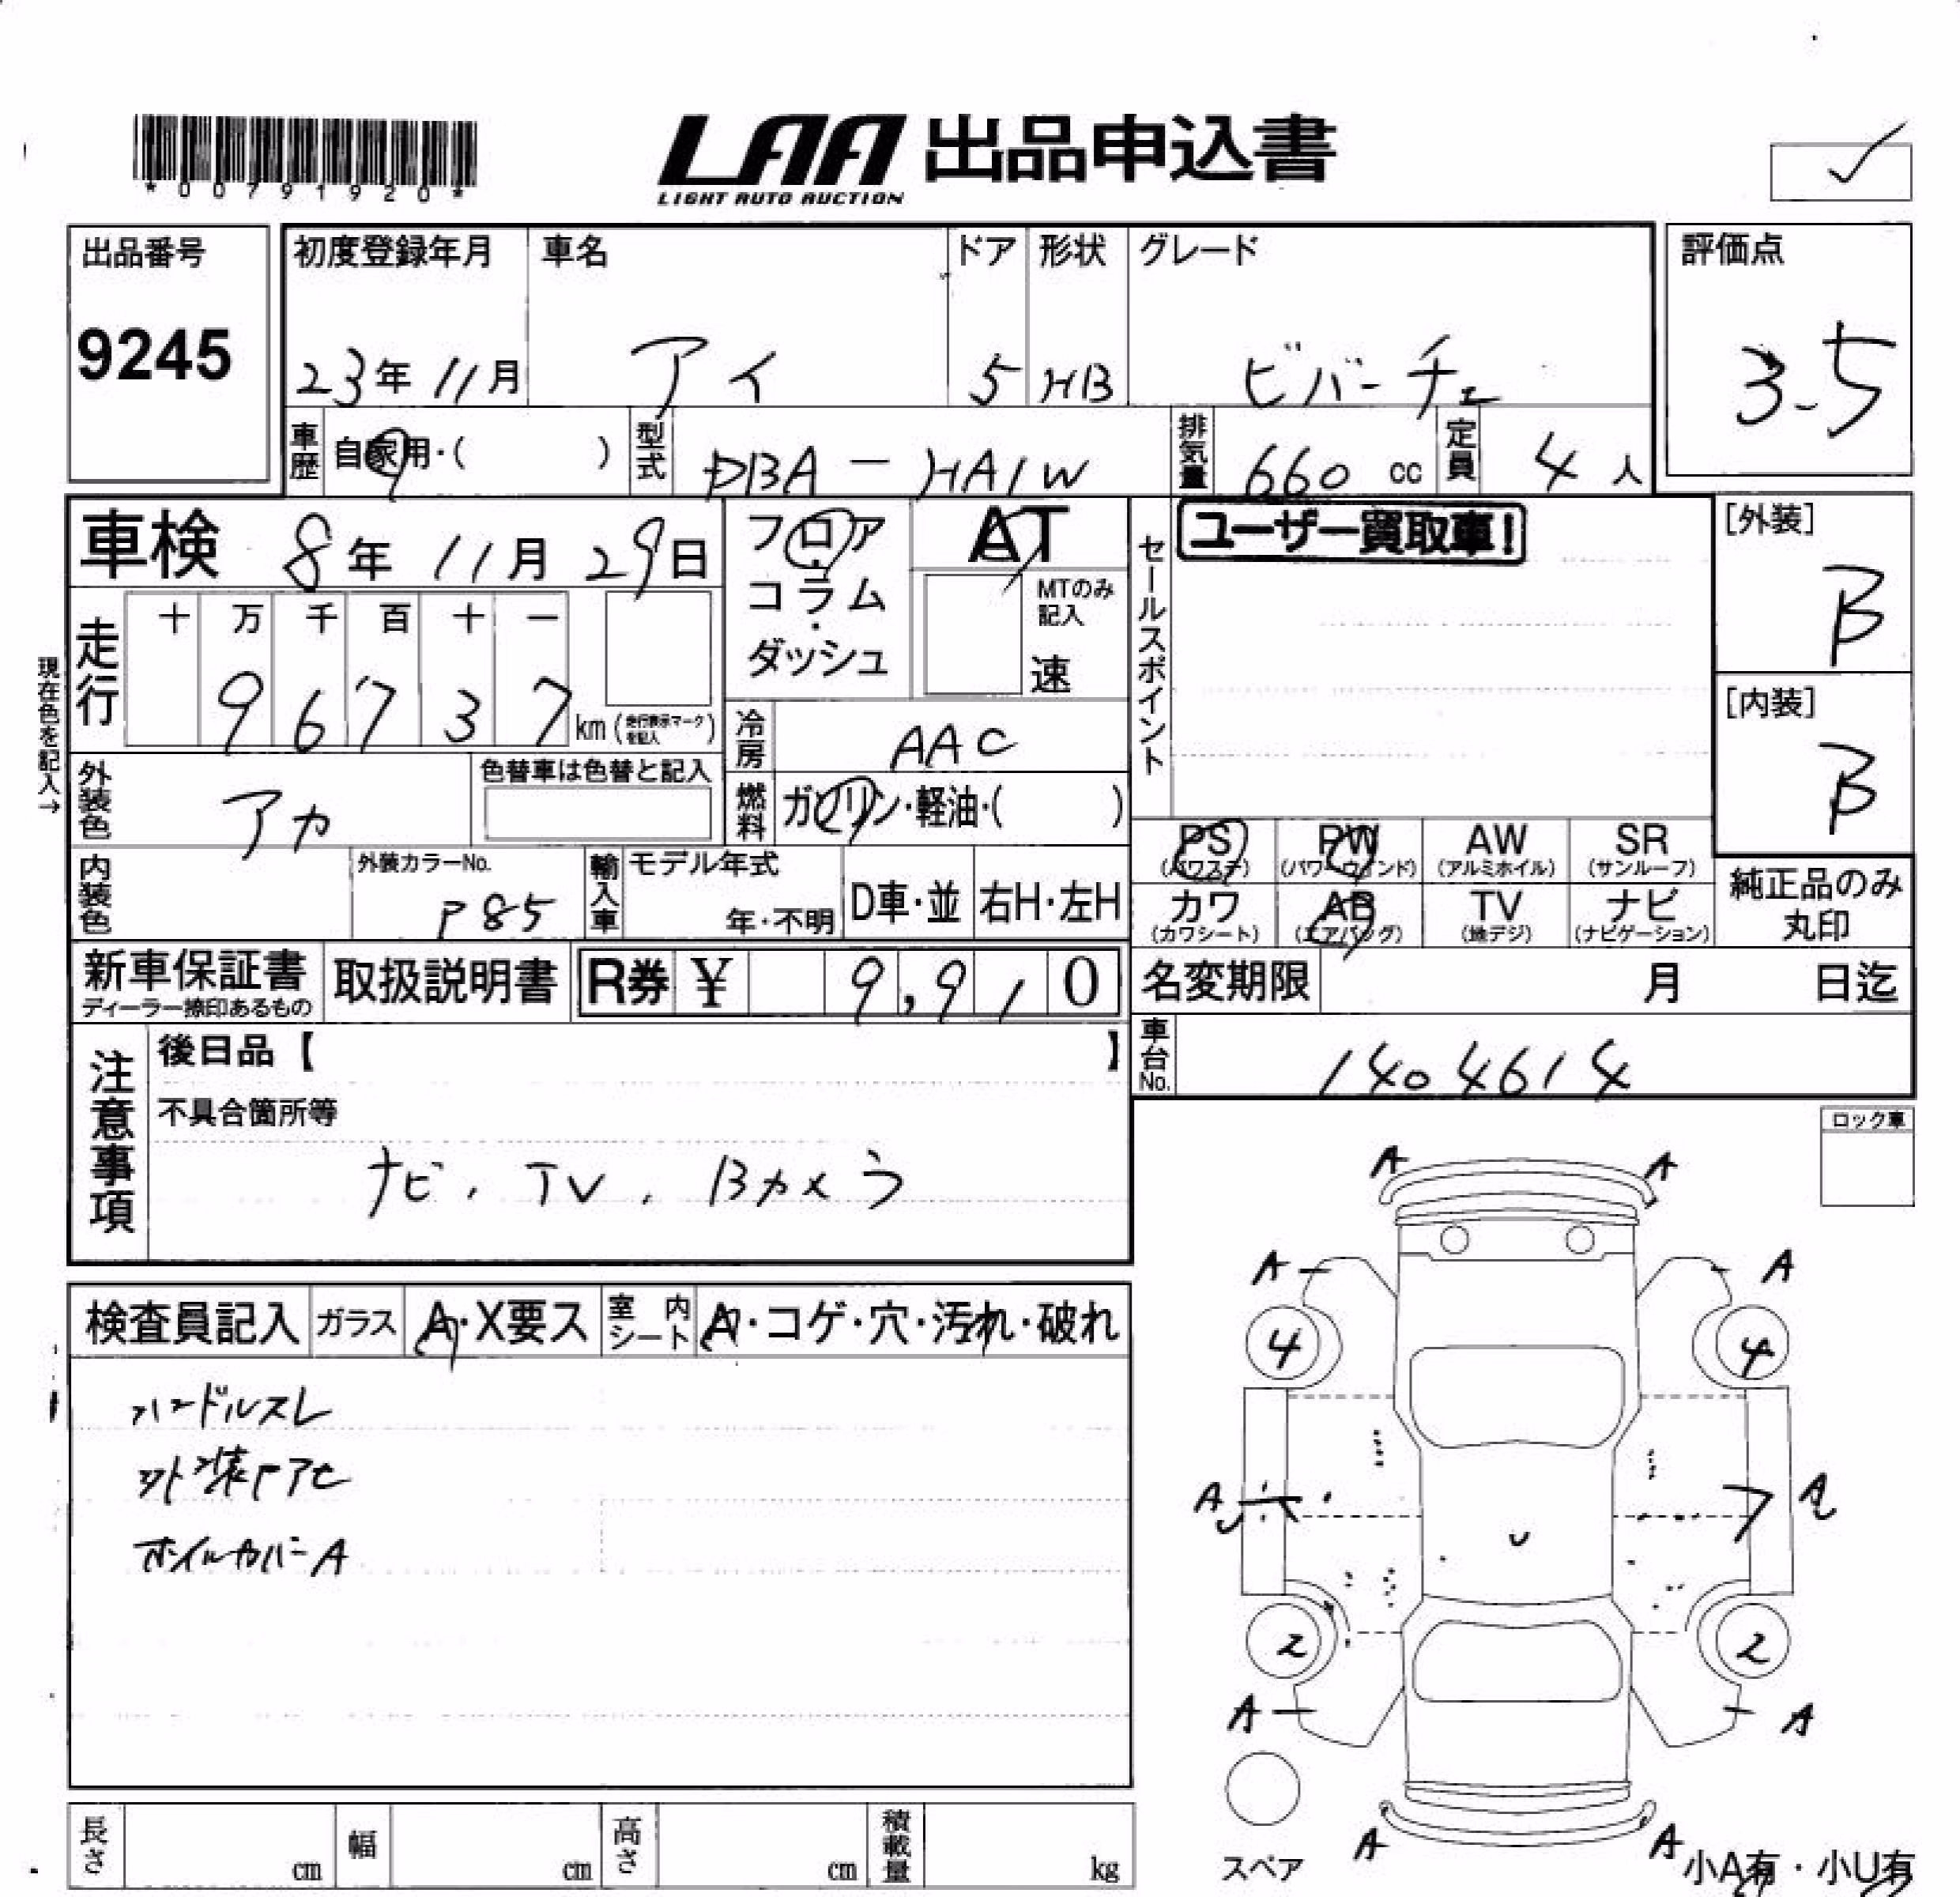 *00791920*
LAA 出品申込書
LIGHT AUTO AUCTION
出品番号
9245
初度登録年月 車名 ドア 形状 グレード
23年 11月 アイ 5 HB ビバーチェ
評価点
3.5
車歴 自家用・( ) 型式 DBA-HA1W 排気量 660 cc 定員 4 人
車検 8年 11月 29日
フロア AT
コラム・
ダッシュ
MTのみ
記入
速
セールスポイント
ユーザー買取車!
[外装]
B
[内装]
B
現在色を記入→
走行 十 万 千 百 十 一
9 6 7 3 7 km (走行表示マークを記入)
冷房 AAC
外装色 アカ 色替車は色替と記入
燃料 ガソリン・軽油・( )
PS PW AW SR
(パワステ) (パワーウィンド) (アルミホイル) (サンルーフ)
カワ AB TV ナビ
(カワシート) (エアバッグ) (地デジ) (ナビゲーション)
純正品のみ
丸印
内装色 外装カラーNo. P85
輸入車 モデル年式 年・不明 D車・並 右H・左H
新車保証書 取扱説明書 R券 ¥ 9,910
ディーラー捺印あるもの
名変期限 月 日迄
車台No. 1404614
注意事項
後日品【 】
不具合箇所等
ナビ、TV、Bカメラ
ロック車
検査員記入 ガラス A・X要ス 室内シート A・コゲ・穴・汚れ・破れ
ハンドルスレ
外装アセ
ホイルカバーA
A A
A A
4 4
A A
2 2
A A
A A
スペア
小A有・小U有
長さ cm 幅 cm 高さ cm 積載量 kg